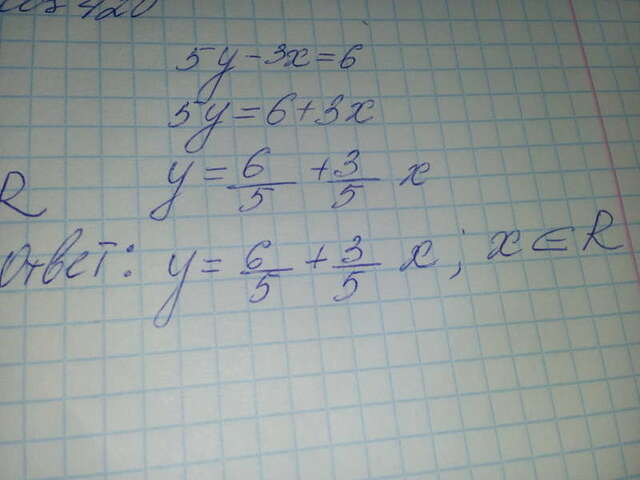 420
5y - 3x = 6
5y = 6 + 3x
R y = 6/5 + 3/5 x
Ответ: y = 6/5 + 3/5 x ; x ∈ R